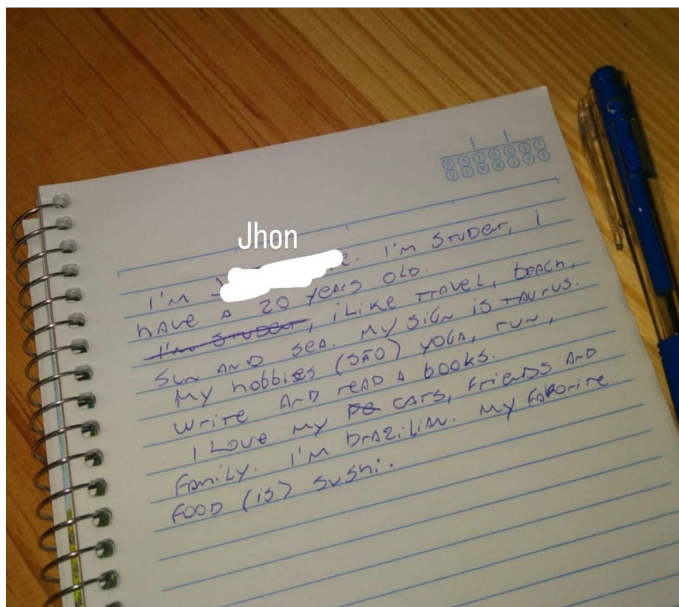 Jhon
I'm e. I'm Studet, i
have a 20 years old.
I'm Studet, i Like travel, beach,
Sun and sea. My sign is taurus.
My hobbies (São) yoga, run,
write and read a books.
I Love my cats, friends and
family. I'm brazilian. My faborite
food (is) sushi.